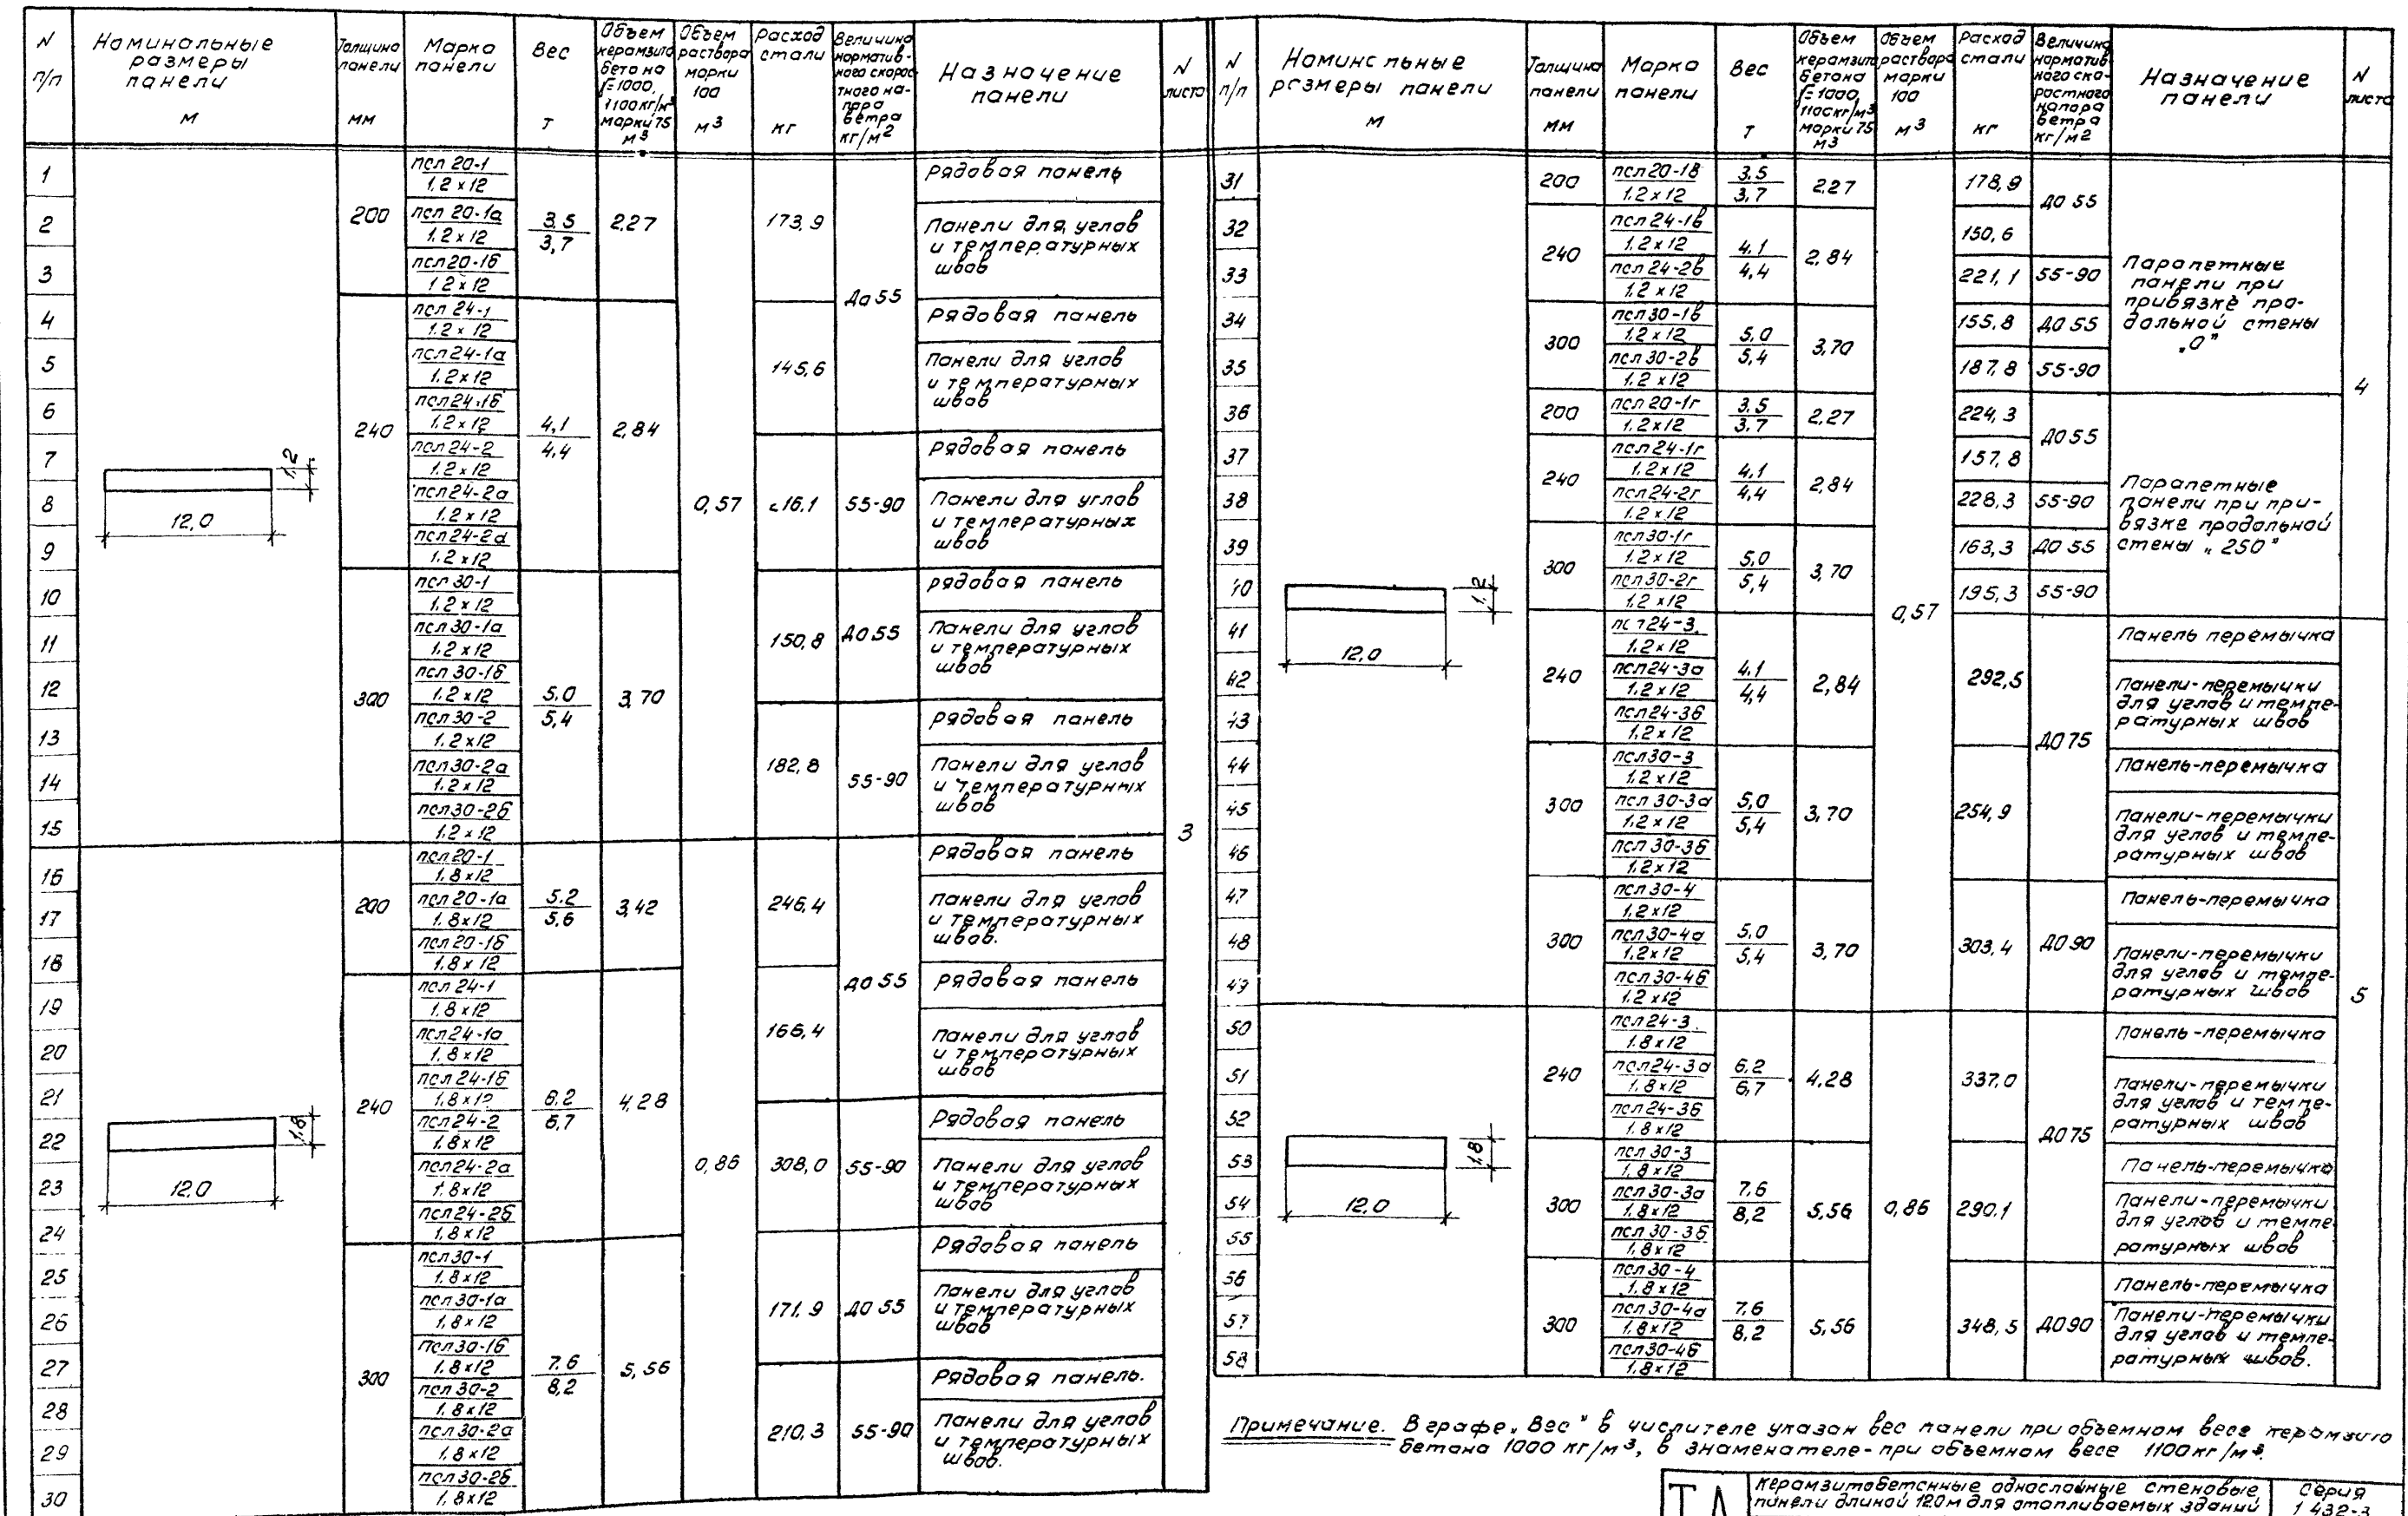 N п/п
Номинальные размеры панели м
Толщина панели мм
Марка панели
Вес т
Объем керамзитобетона γ=1000, 1100 кг/м³ марки 75 м³
Объем раствора марки 100 м³
Расход стали кг
Величина нормативного скоростного напора ветра кг/м2
Назначение панели
N листа
1 200 псл 20-1 1.2 x 12 3.5 3,7 2.27 0,57 173,9 до 55 Рядовая панель 3
2 псл 20-1а 1.2 x 12 Панели для углов и температурных швов
3 псл 20-1б 1.2 x 12
4 240 псл 24-1 1.2 x 12 4,1 4,4 2,84 145,6 Рядовая панель
5 псл 24-1а 1.2 x 12 Панели для углов и температурных швов
6 псл 24-1б 1.2 x 12
7 псл 24-2 1.2 x 12 55-90 Рядовая панель
8 псл 24-2а 1.2 x 12 Панели для углов и температурных швов
9 псл 24-2б 1.2 x 12
1,2
12,0
10 300 псл 30-1 1.2 x 12 5.0 5,4 3,70 150,8 до 55 Рядовая панель
11 псл 30-1а 1.2 x 12 Панели для углов и температурных швов
12 псл 30-1б 1.2 x 12
13 псл 30-2 1.2 x 12 182,8 55-90 Рядовая панель
14 псл 30-2а 1.2 x 12 Панели для углов и температурных швов
15 псл 30-2б 1.2 x 12
16 200 псл 20-1 1.8 x 12 5.2 5,6 3,42 0,86 246,4 до 55 Рядовая панель
17 псл 20-1а 1.8 x 12 Панели для углов и температурных швов.
18 псл 20-1б 1.8 x 12
19 240 псл 24-1 1.8 x 12 6.2 6,7 4,28 166,4 Рядовая панель
20 псл 24-1а 1.8 x 12 Панели для углов и температурных швов
21 псл 24-1б 1.8 x 12
22 псл 24-2 1.8 x 12 308,0 55-90 Рядовая панель
23 псл 24-2а 1.8 x 12 Панели для углов и температурных швов
24 псл 24-2б 1.8 x 12
1,8
12.0
25 300 псл 30-1 1.8 x 12 7.6 8,2 5,56 171.9 до 55 Рядовая панель
26 псл 30-1а 1.8 x 12 Панели для углов и температурных швов
27 псл 30-1б 1.8 x 12
28 псл 30-2 1.8 x 12 210,3 55-90 Рядовая панель.
29 псл 30-2а 1.8 x 12 Панели для углов и температурных швов.
30 псл 30-2б 1.8 x 12
N п/п
Номинальные размеры панели м
Толщина панели мм
Марка панели
Вес т
Объем керамзитобетона γ=1000, 1100 кг/м³ марки 75 м3
Объем раствора марки 100 м³
Расход стали кг
Величина нормативного скоростного напора ветра кг/м2
Назначение панели
N листа
31 200 псл 20-1в 1.2 x 12 3.5 3,7 2,27 0,57 178,9 до 55 Парапетные панели при привязке продольной стены „0" 4
32 240 псл 24-1в 1.2 x 12 4.1 4,4 2,84 150,6
33 псл 24-2в 1.2 x 12 221,1 55-90
34 300 псл 30-1в 1.2 x 12 5.0 5,4 3,70 155,8 до 55
35 псл 30-2в 1.2 x 12 187,8 55-90
36 200 псл 20-1г 1.2 x 12 3.5 3.7 2,27 224,3 до 55 Парапетные панели при привязке продольной стены „250"
37 240 псл 24-1г 1.2 x 12 4,1 4,4 2,84 157,8
38 псл 24-2г 1.2 x 12 228,3 55-90
39 300 псл 30-1г 1.2 x 12 5,0 5,4 3,70 163,3 до 55
40 псл 30-2г 1.2 x 12 195,3 55-90
1,2
12,0
41 240 псл 24-3 1.2 x 12 4.1 4,4 2,84 292,5 до 75 Панель перемычка 5
42 псл 24-3а 1.2 x 12 Панели-перемычки для углов и температурных швов
43 псл 24-3б 1.2 x 12
44 300 псл 30-3 1.2 x 12 5,0 5,4 3,70 254,9 Панель-перемычка
45 псл 30-3а 1.2 x 12 Панели-перемычки для углов и температурных швов
46 псл 30-3б 1.2 x 12
47 300 псл 30-4 1.2 x 12 5.0 5,4 3,70 303,4 до 90 Панель-перемычка
48 псл 30-4а 1.2 x 12 Панели-перемычки для углов и температурных швов
49 псл 30-4б 1.2 x 12
50 240 псл 24-3 1.8 x 12 6.2 6,7 4,28 0,86 337,0 до 75 Панель-перемычка
51 псл 24-3а 1.8 x 12 Панели-перемычки для углов и температурных швов
52 псл 24-3б 1.8 x 12
1,8
12,0
53 300 псл 30-3 1.8 x 12 7.6 8,2 5,56 290.1 Панель-перемычка
54 псл 30-3а 1.8 x 12 Панели-перемычки для углов и температурных швов
55 псл 30-3б 1.8 x 12
56 300 псл 30-4 1.8 x 12 7.6 8,2 5,56 348,5 до 90 Панель-перемычка
57 псл 30-4а 1.8 x 12 Панели-перемычки для углов и температурных швов.
58 псл 30-4б 1.8 x 12
Примечание. В графе „Вес" в числителе указан вес панели при объемном весе керамзито
бетона 1000 кг/м³, в знаменателе - при объемном весе 1100 кг/м³.
ТА
Керамзитобетонные однослойные стеновые
панели длиной 12.0 м для отапливаемых зданий
Серия
1.432-3